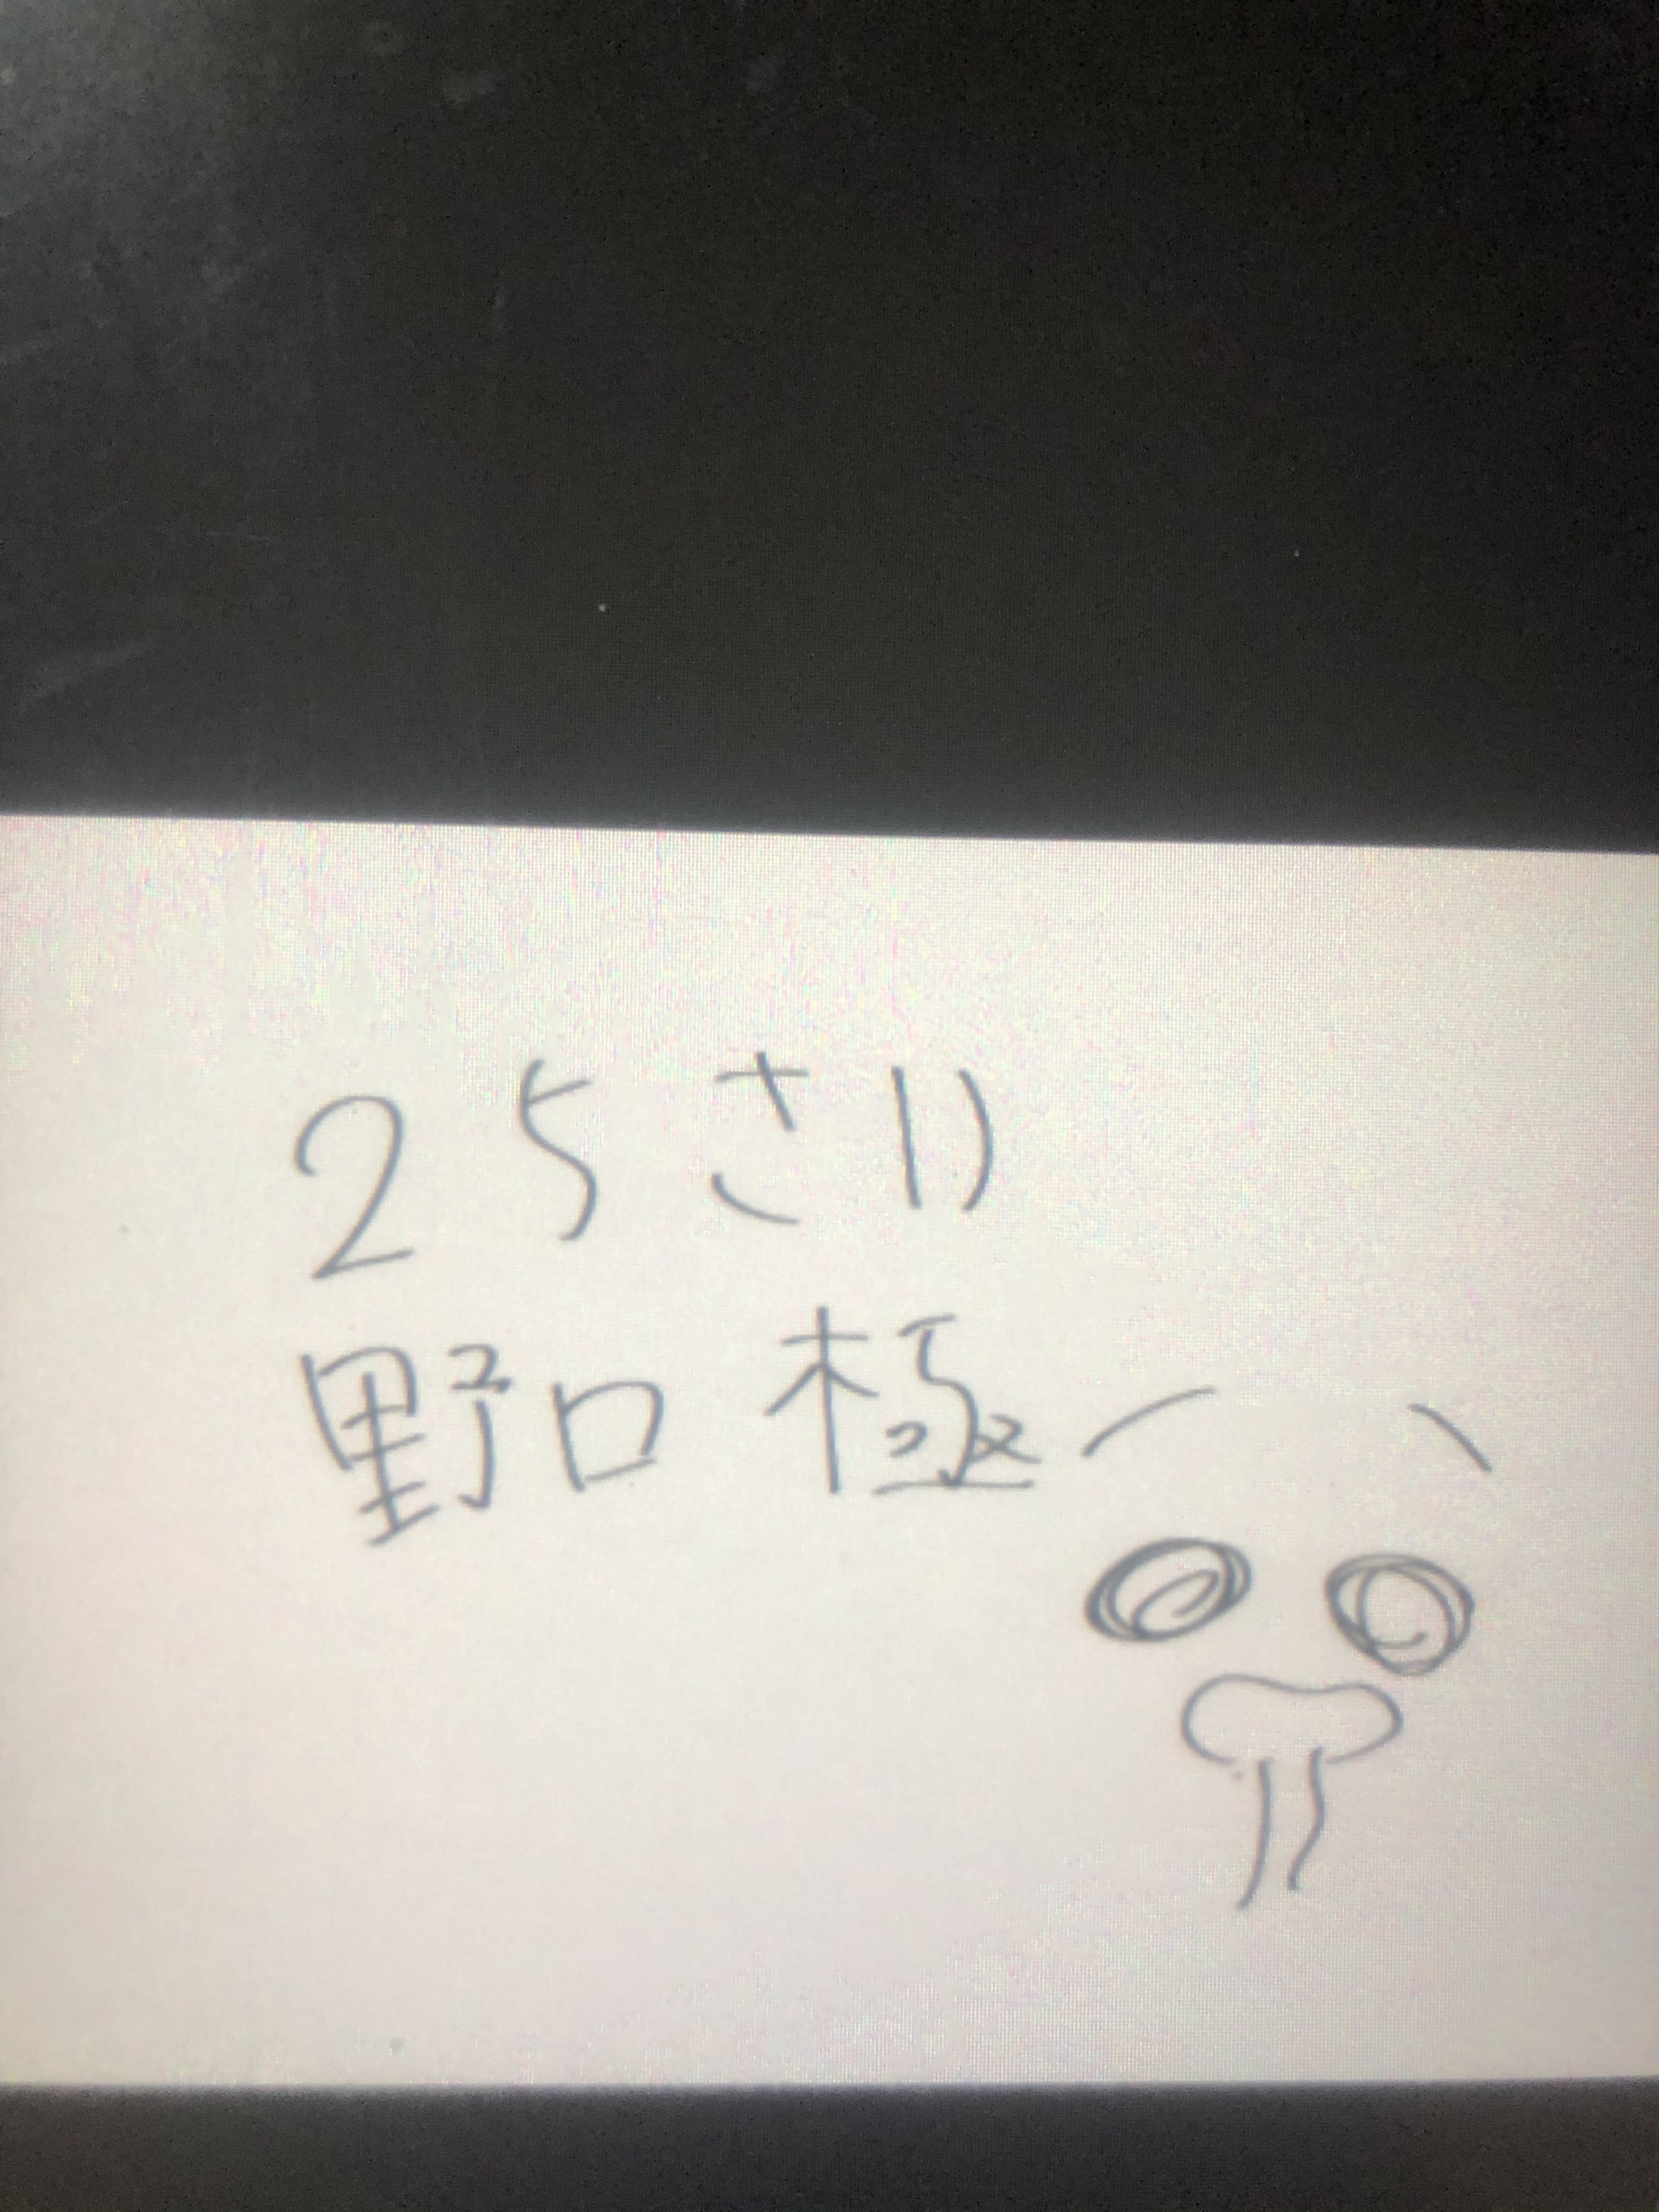 25さい
野口 極